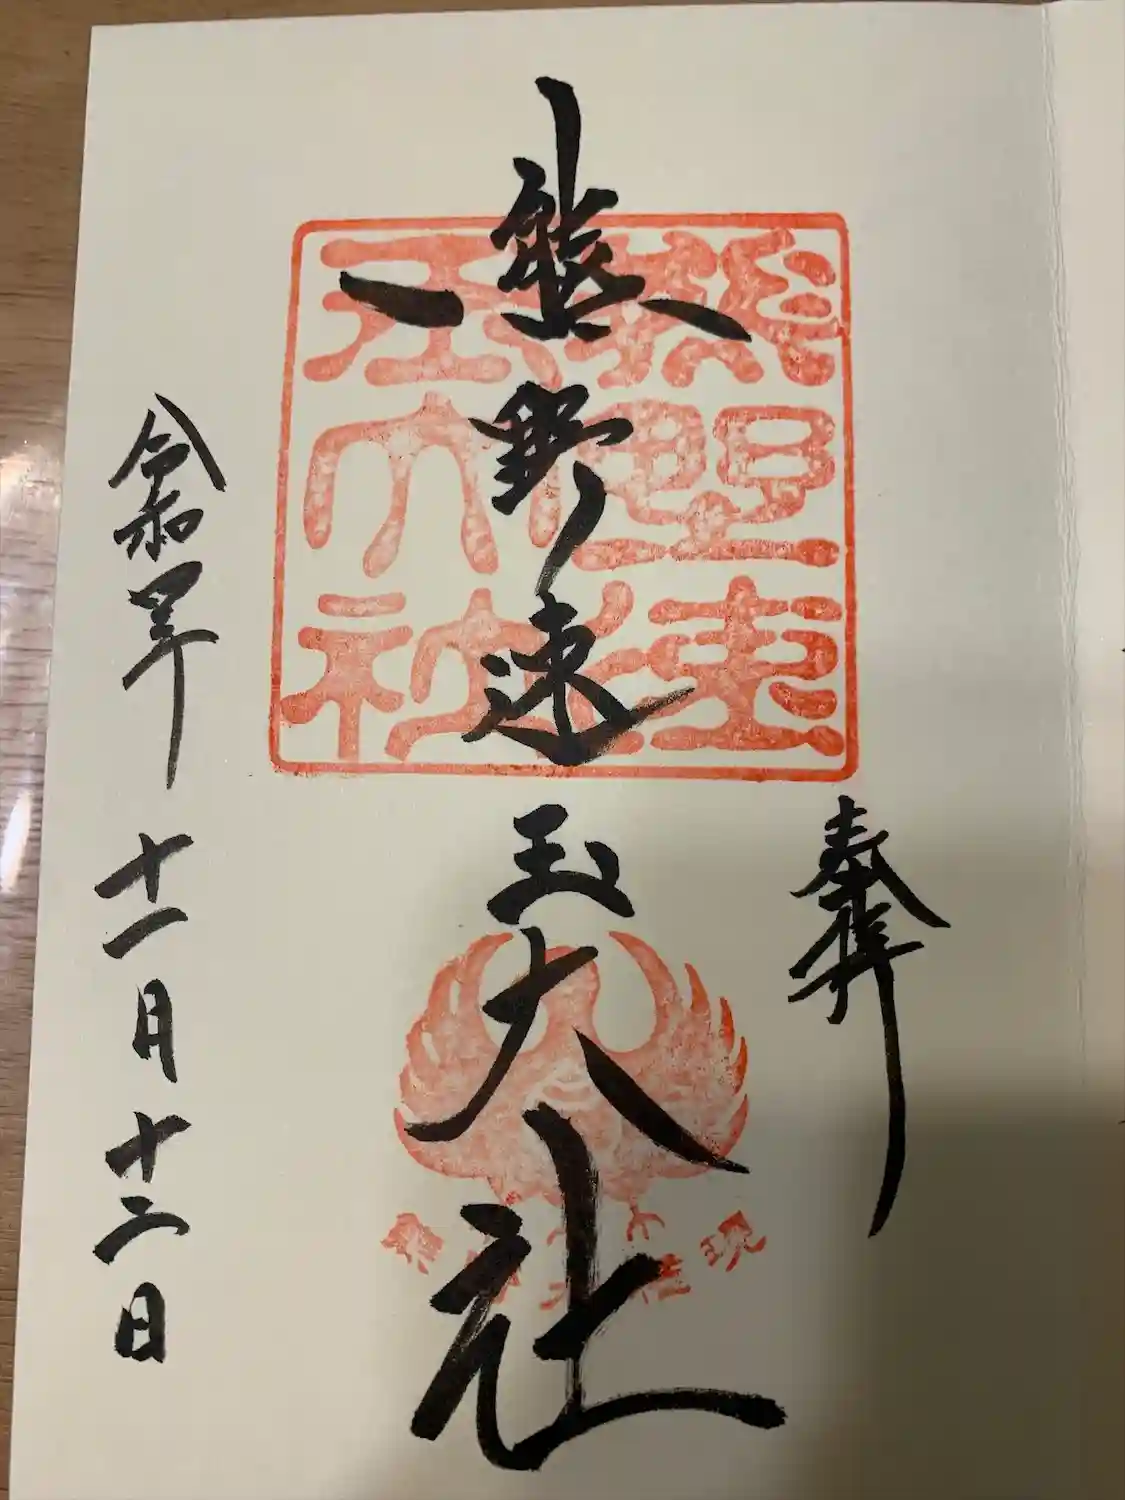 奉拝
熊野速玉大社
令和四年十一月十二日
熊野速玉大社
熊野大権現